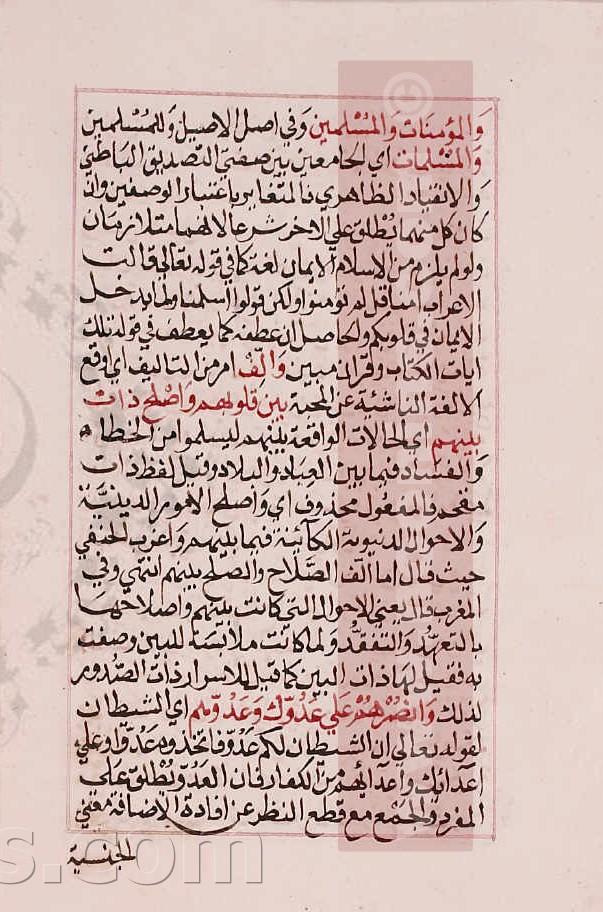 والمؤمنات والمسلمين وفي اصل الاصيل وللمسلمين
والمسلمات اي الجامعين بين صفتي التصديق الباطني
والانقياد الظاهري فالمتغاير باعتبار الوصفين وان
كان كل منهما يُطلق علي الاخر شرعا لانهما متلازمان
ولو لم يلزم من الاسلام الايمان لغة كما في قوله تعالي قالت
الاعراب امنا قل لم تؤمنوا ولكن قولوا اسلمنا ولما يدخل
الايمان في قلوبكم والحاصل ان عطفه كما يعطف في قوله تلك
ايات الكتاب وقران مبين والّف امر من التاليف اي اوقع
الالفة الناشئة عن المحبة بين قلوبهم واصلح ذات
بينهم اي الحالات الواقعة بينهم ليسلموا من الخطاء
والفساد فيما بين العباد والبلاد وقيل لفظ ذات
مقحم فالمفعول محذوف اي واصلح الامور الدينيّة
والاحوال الدنيوية الكآئنة فيما بينهم واغرب الحنفي
حيث قال اما الّف الصّلاح والصلح بينهم انتهي وفي
المغرب قال يعني الاحوال التي كانت بينهم واصلاحها
بالتعهّد والتفقّد ولما كانت ملابسة للبين وصفت
به فقيل لها ذات البين كما قيل للاسرار ذات الصّدور
لذلك وانصُرهُم علي عدُوّك وعدُوّهم اي الشيطان
لقوله تعالي ان الشيطان لكم عدوّ فاتخذوه عدوّا وعلي
اعدائك واعدآئهم من الكفار فان العدُوّ يُطلق علي
المفرد والجمع مع قطع النظر عن افادة الاضافة معني
الجنسية
s.com